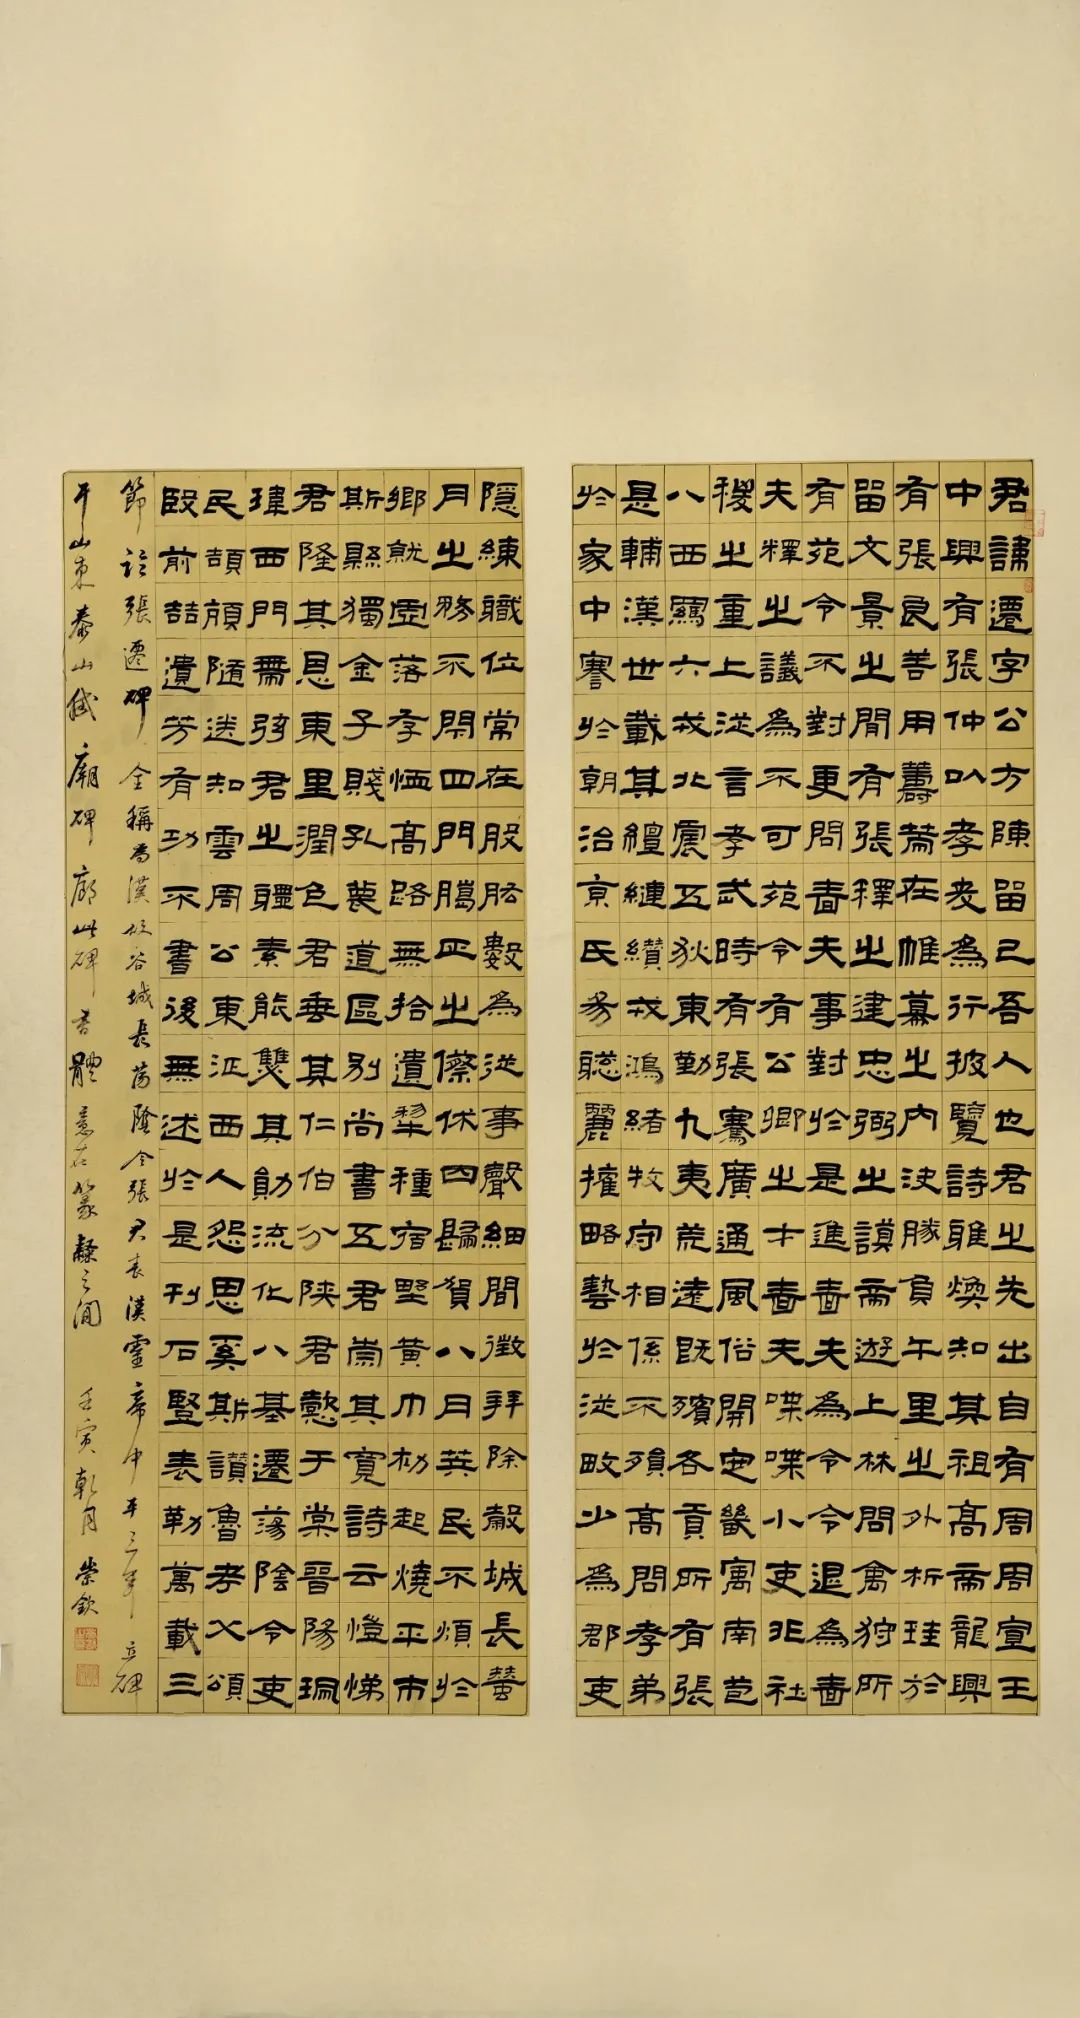 君諱遷字公方陳留己吾人也君之先出自有周周宣王
中興有張仲以孝友為行披覽詩雅煥知其祖高帝龍興
有張良善用籌策在帷幕之內決勝負千里之外析珪於
留文景之間有張釋之建忠弼之謨帝遊上林問禽狩所
有苑令不對更問嗇夫事對於是進嗇夫為令令退為嗇
夫釋之議為不可苑令有公卿之才嗇夫喋喋小吏非社
稷之重上從言孝武時有張騫廣通風俗開定畿寓南苞
八西羈六戎北震五狄東勤九夷荒遠既殯各貢所有張
是輔漢世載其繵縺纘戎鴻緒牧守相係不殞高問孝弟
於家中謇於朝治京氏易聰麗權略藝於從畋少為郡吏
隱練職位常在股肱數為從事聲細聞徵拜除穀城長蠶
月之務不閉四門臘正之傺休囚歸賀八月筭民不煩於
鄉就虛落存恤高路無拾遺犁種宿野黃巾初起燒平市
斯縣獨全子賤孔蔑道區別尚書五君崇其寬詩云愷悌
君隆其恩東里潤色君垂其仁伯分陝君懿于棠晉陽珮
瑋西門帶弦君之體素能雙其勛流化八基遷蕩陰令吏
民頡頏隨送如雲周公東征西人怨思奚斯讚魯考父頌
殷前喆遺芳有功不書後無述於是刊石豎表勒萬載三
節臨張遷碑 全稱為漢故谷城長蕩陰令張君表漢靈帝中平三年立碑
于山東泰山岱廟碑廊此碑書體意在篆隸之間 壬寅乾月 崇欽